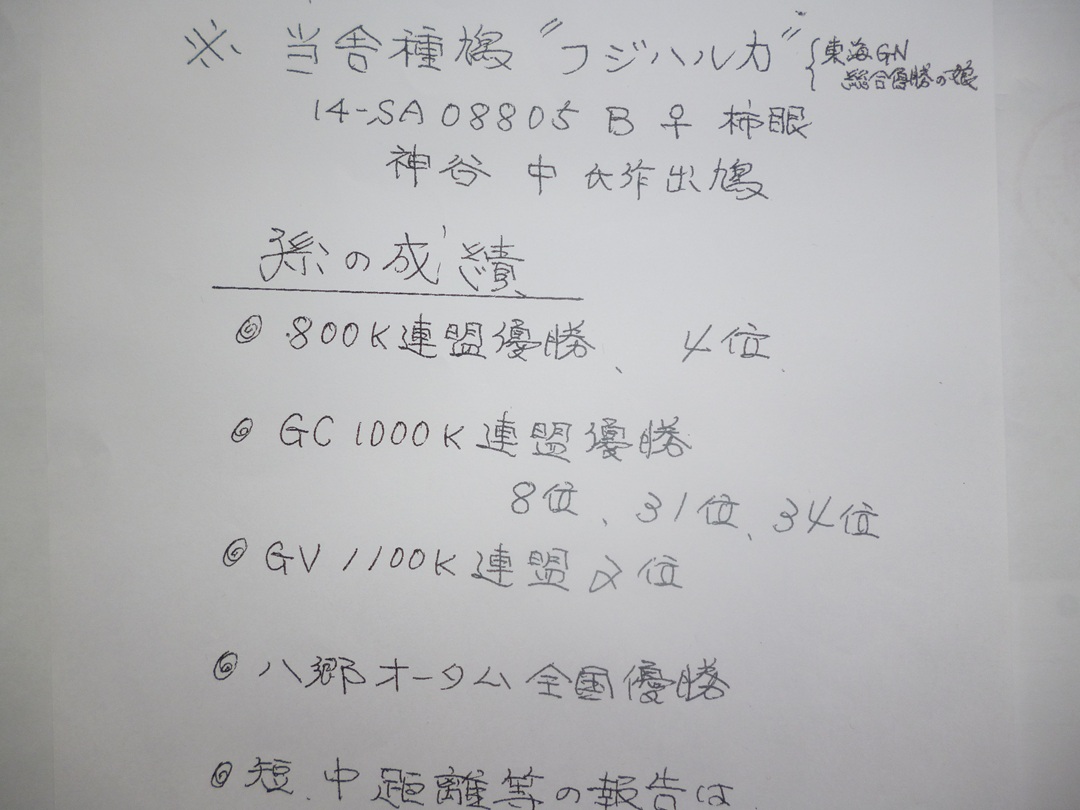 ※ 当舎種鳩 "フジハルカ" {東海GN
総合優勝の娘
14-SA08805 B ♀ 柿眼
神谷 中 氏作出鳩
孫の成績
◎ 800K連盟優勝、 4位
◎ GC1000K連盟優勝
8位、31位、34位
◎ GV1100K連盟2位
◎ 八郷オータム全国優勝
◎ 短、中距離等の報告は